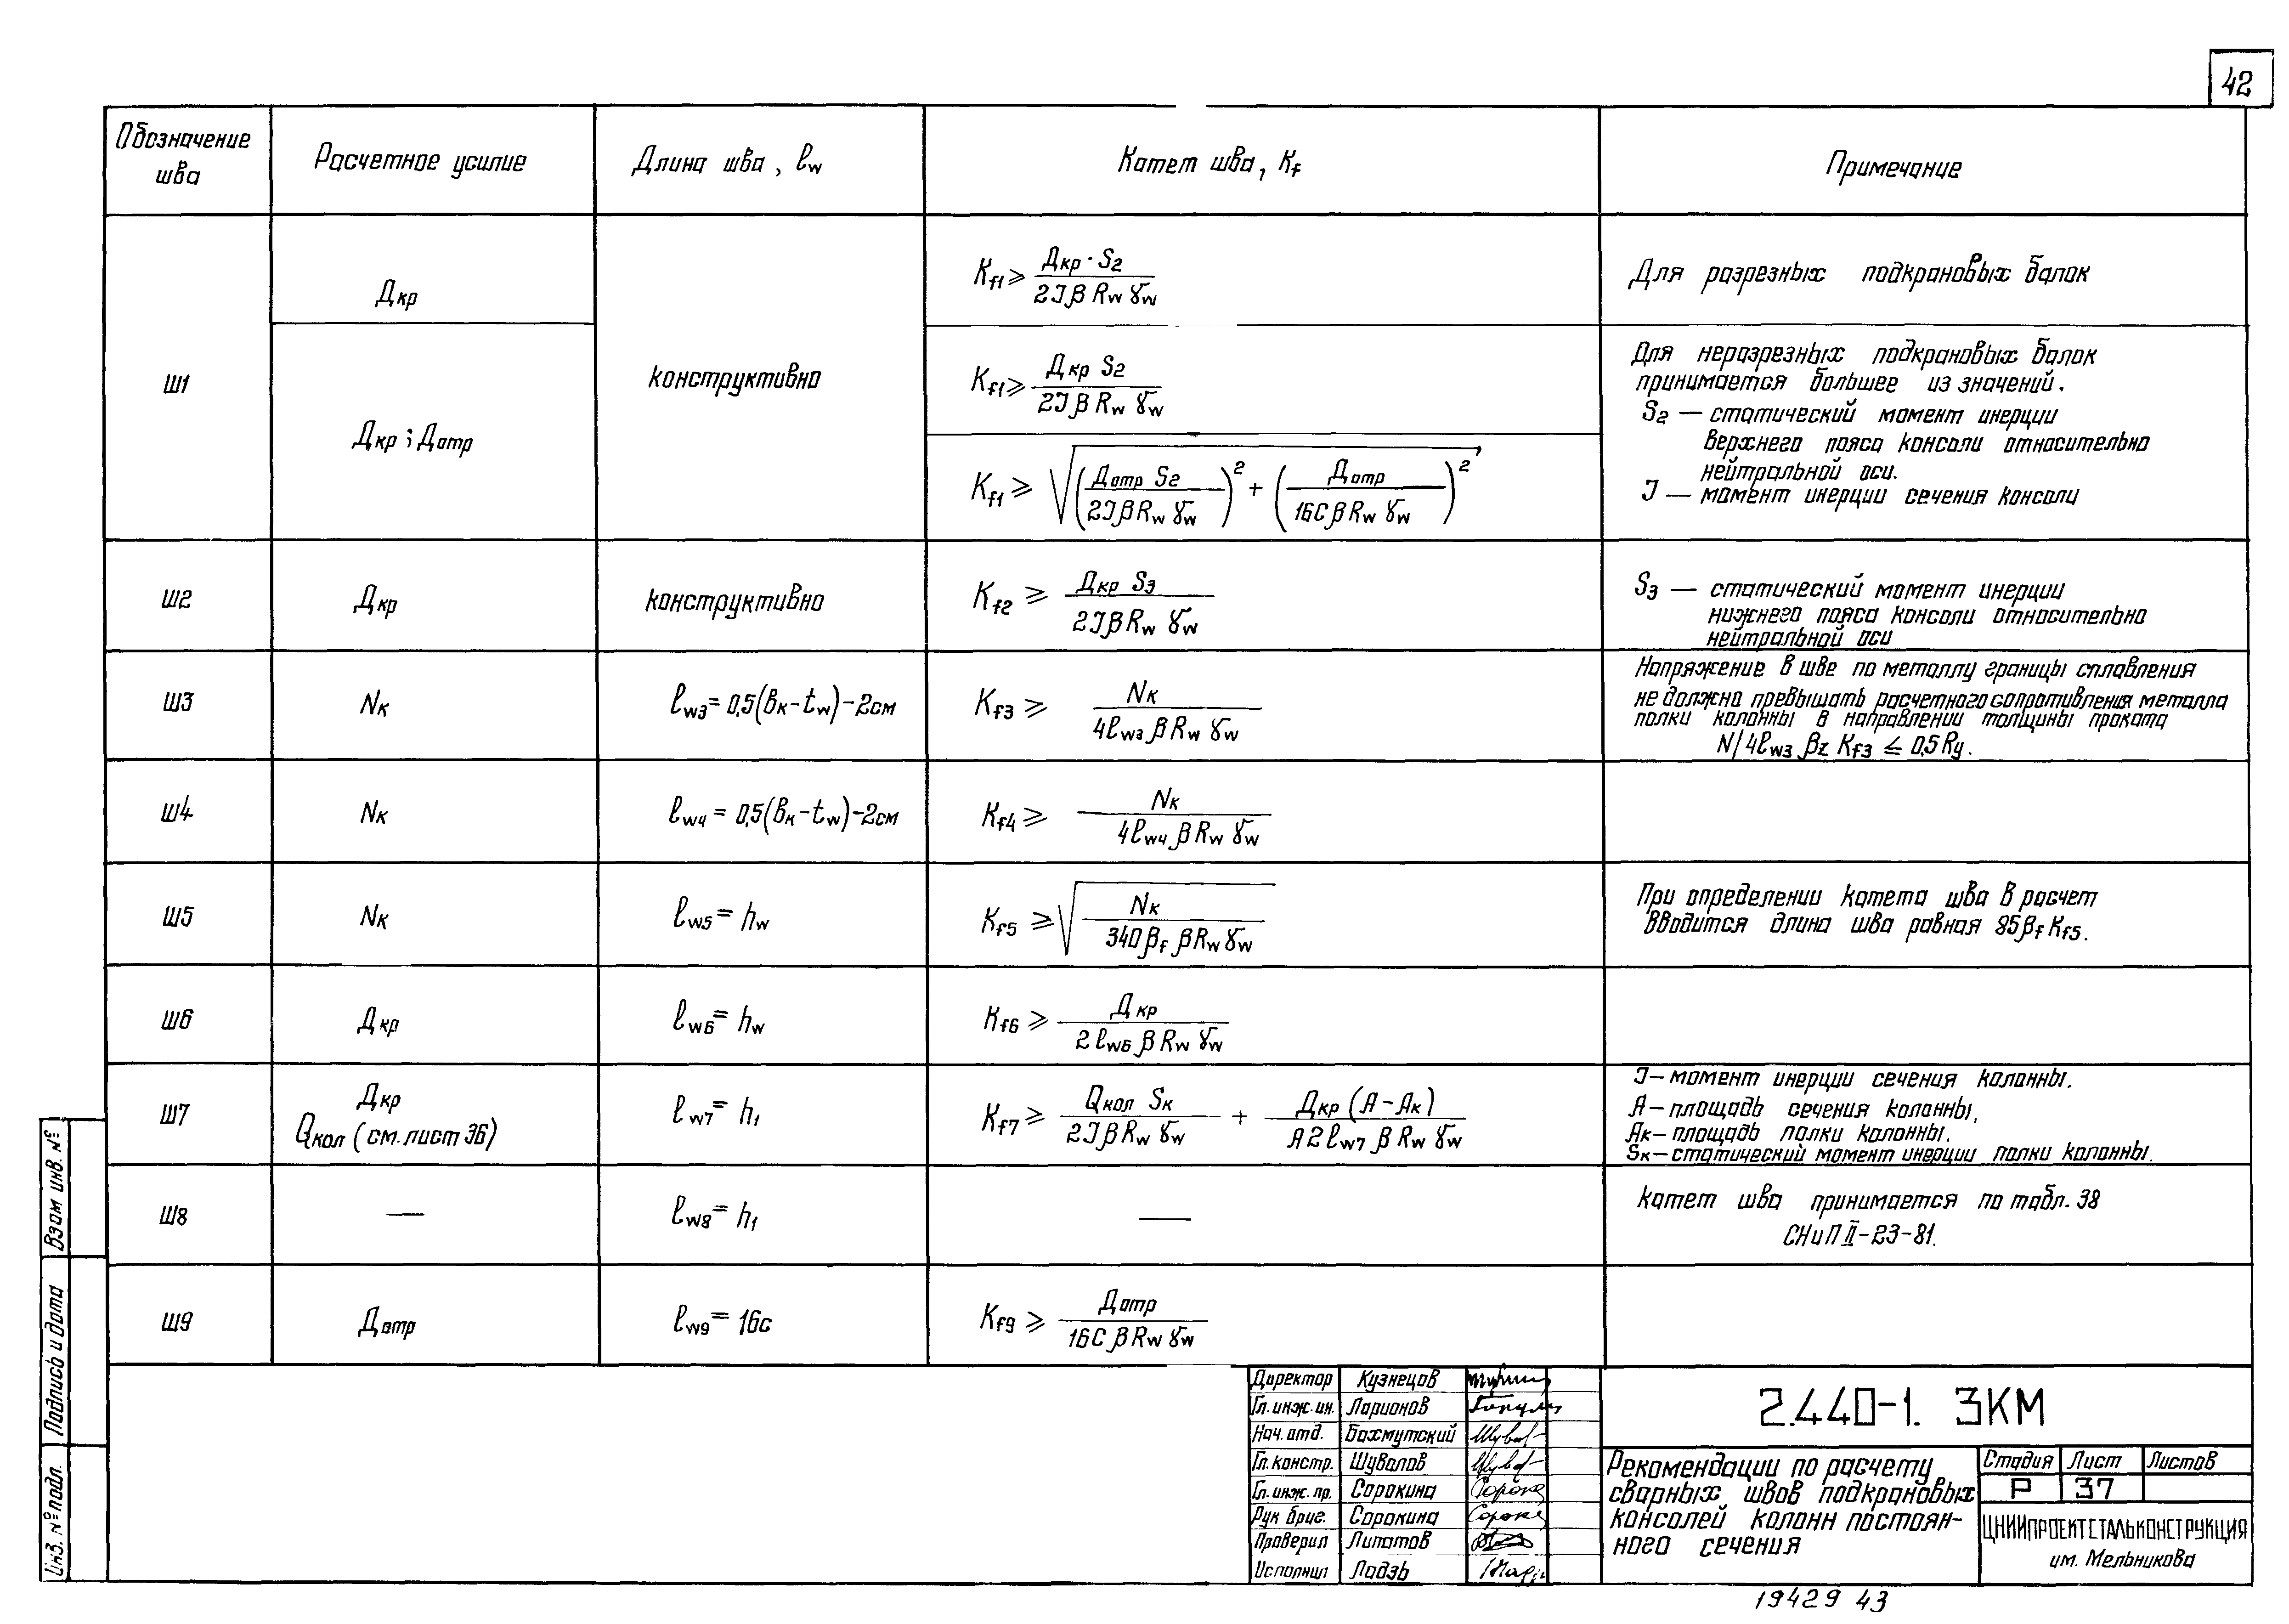 42
Обозначение шва | Расчетное усилие | Длина шва, ℓw | Катет шва, Kf | Примечание
Ш1 | Дкр | конструктивно | Kf1 ⩾ Дкр · S2 / 2Jβ Rw γw | Для разрезных подкрановых балок
Дкр ; Дотр | Kf1 ⩾ Дкр S2 / 2Jβ Rw γw
Kf1 ⩾ √((Дотр S2 / 2Jβ Rw γw)² + (Дотр / 16C β Rw γw)²)
Для неразрезных подкрановых балок
принимается большее из значений.
S2 — статический момент инерции
верхнего пояса консоли относительно
нейтральной оси.
J — момент инерции сечения консоли
Ш2 | Дкр | конструктивно | Kf2 ⩾ Дкр S3 / 2Jβ Rw γw
S3 — статический момент инерции
нижнего пояса консоли относительно
нейтральной оси
Ш3 | Nк | ℓw3 = 0,5(bк – tw) – 2см | Kf3 ⩾ Nк / 4ℓw3 β Rw γw
Напряжение в шве по металлу границы сплавления
не должно превышать расчетного сопротивления металла
полки колонны в направлении толщины проката
N/4ℓw3 βz Kf3 ⩽ 0,5 Ry.
Ш4 | Nк | ℓw4 = 0,5(bк – tw) – 2см | Kf4 ⩾ Nк / 4ℓw4 β Rw γw
Ш5 | Nк | ℓw5 = hw | Kf5 ⩾ √(Nк / 340 βf β Rw γw)
При определении катета шва в расчет
вводится длина шва равная 85βf Kf5.
Ш6 | Дкр | ℓw6 = hw | Kf6 ⩾ Дкр / 2 ℓw6 β Rw γw
Ш7 | Дкр
Qкол (см. лист 36) | ℓw7 = h1 | Kf7 ⩾ Qкол Sк / 2Jβ Rw γw + Дкр (A – Aк) / A 2 ℓw7 β Rw γw
J – момент инерции сечения колонны.
A – площадь сечения колонны.
Aк – площадь полки колонны.
Sк – статический момент инерции полки колонны.
Ш8 | — | ℓw8 = h1 | —
Катет шва принимается по табл. 38
СНиП II-23-81.
Ш9 | Дотр | ℓw9 = 16c | Kf9 ⩾ Дотр / 16C β Rw γw
Взам инв. №
Подпись и дата
Инв. № подл.
Директор Кузнецов
Гл. инж. ин. Ларионов
Нач. отд. Бахмутский
Гл. констр. Шувалов
Гл. инж. пр. Сорокина
Рук бриг. Сорокина
Проверил Липатов
Исполнил Ладзь
2.440-1. 3КМ
Рекомендации по расчету
сварных швов подкрановых
консолей колонн постоян-
ного сечения
Стадия Лист Листов
Р 37
ЦНИИПРОЕКТСТАЛЬКОНСТРУКЦИЯ
им. Мельникова
19429 43